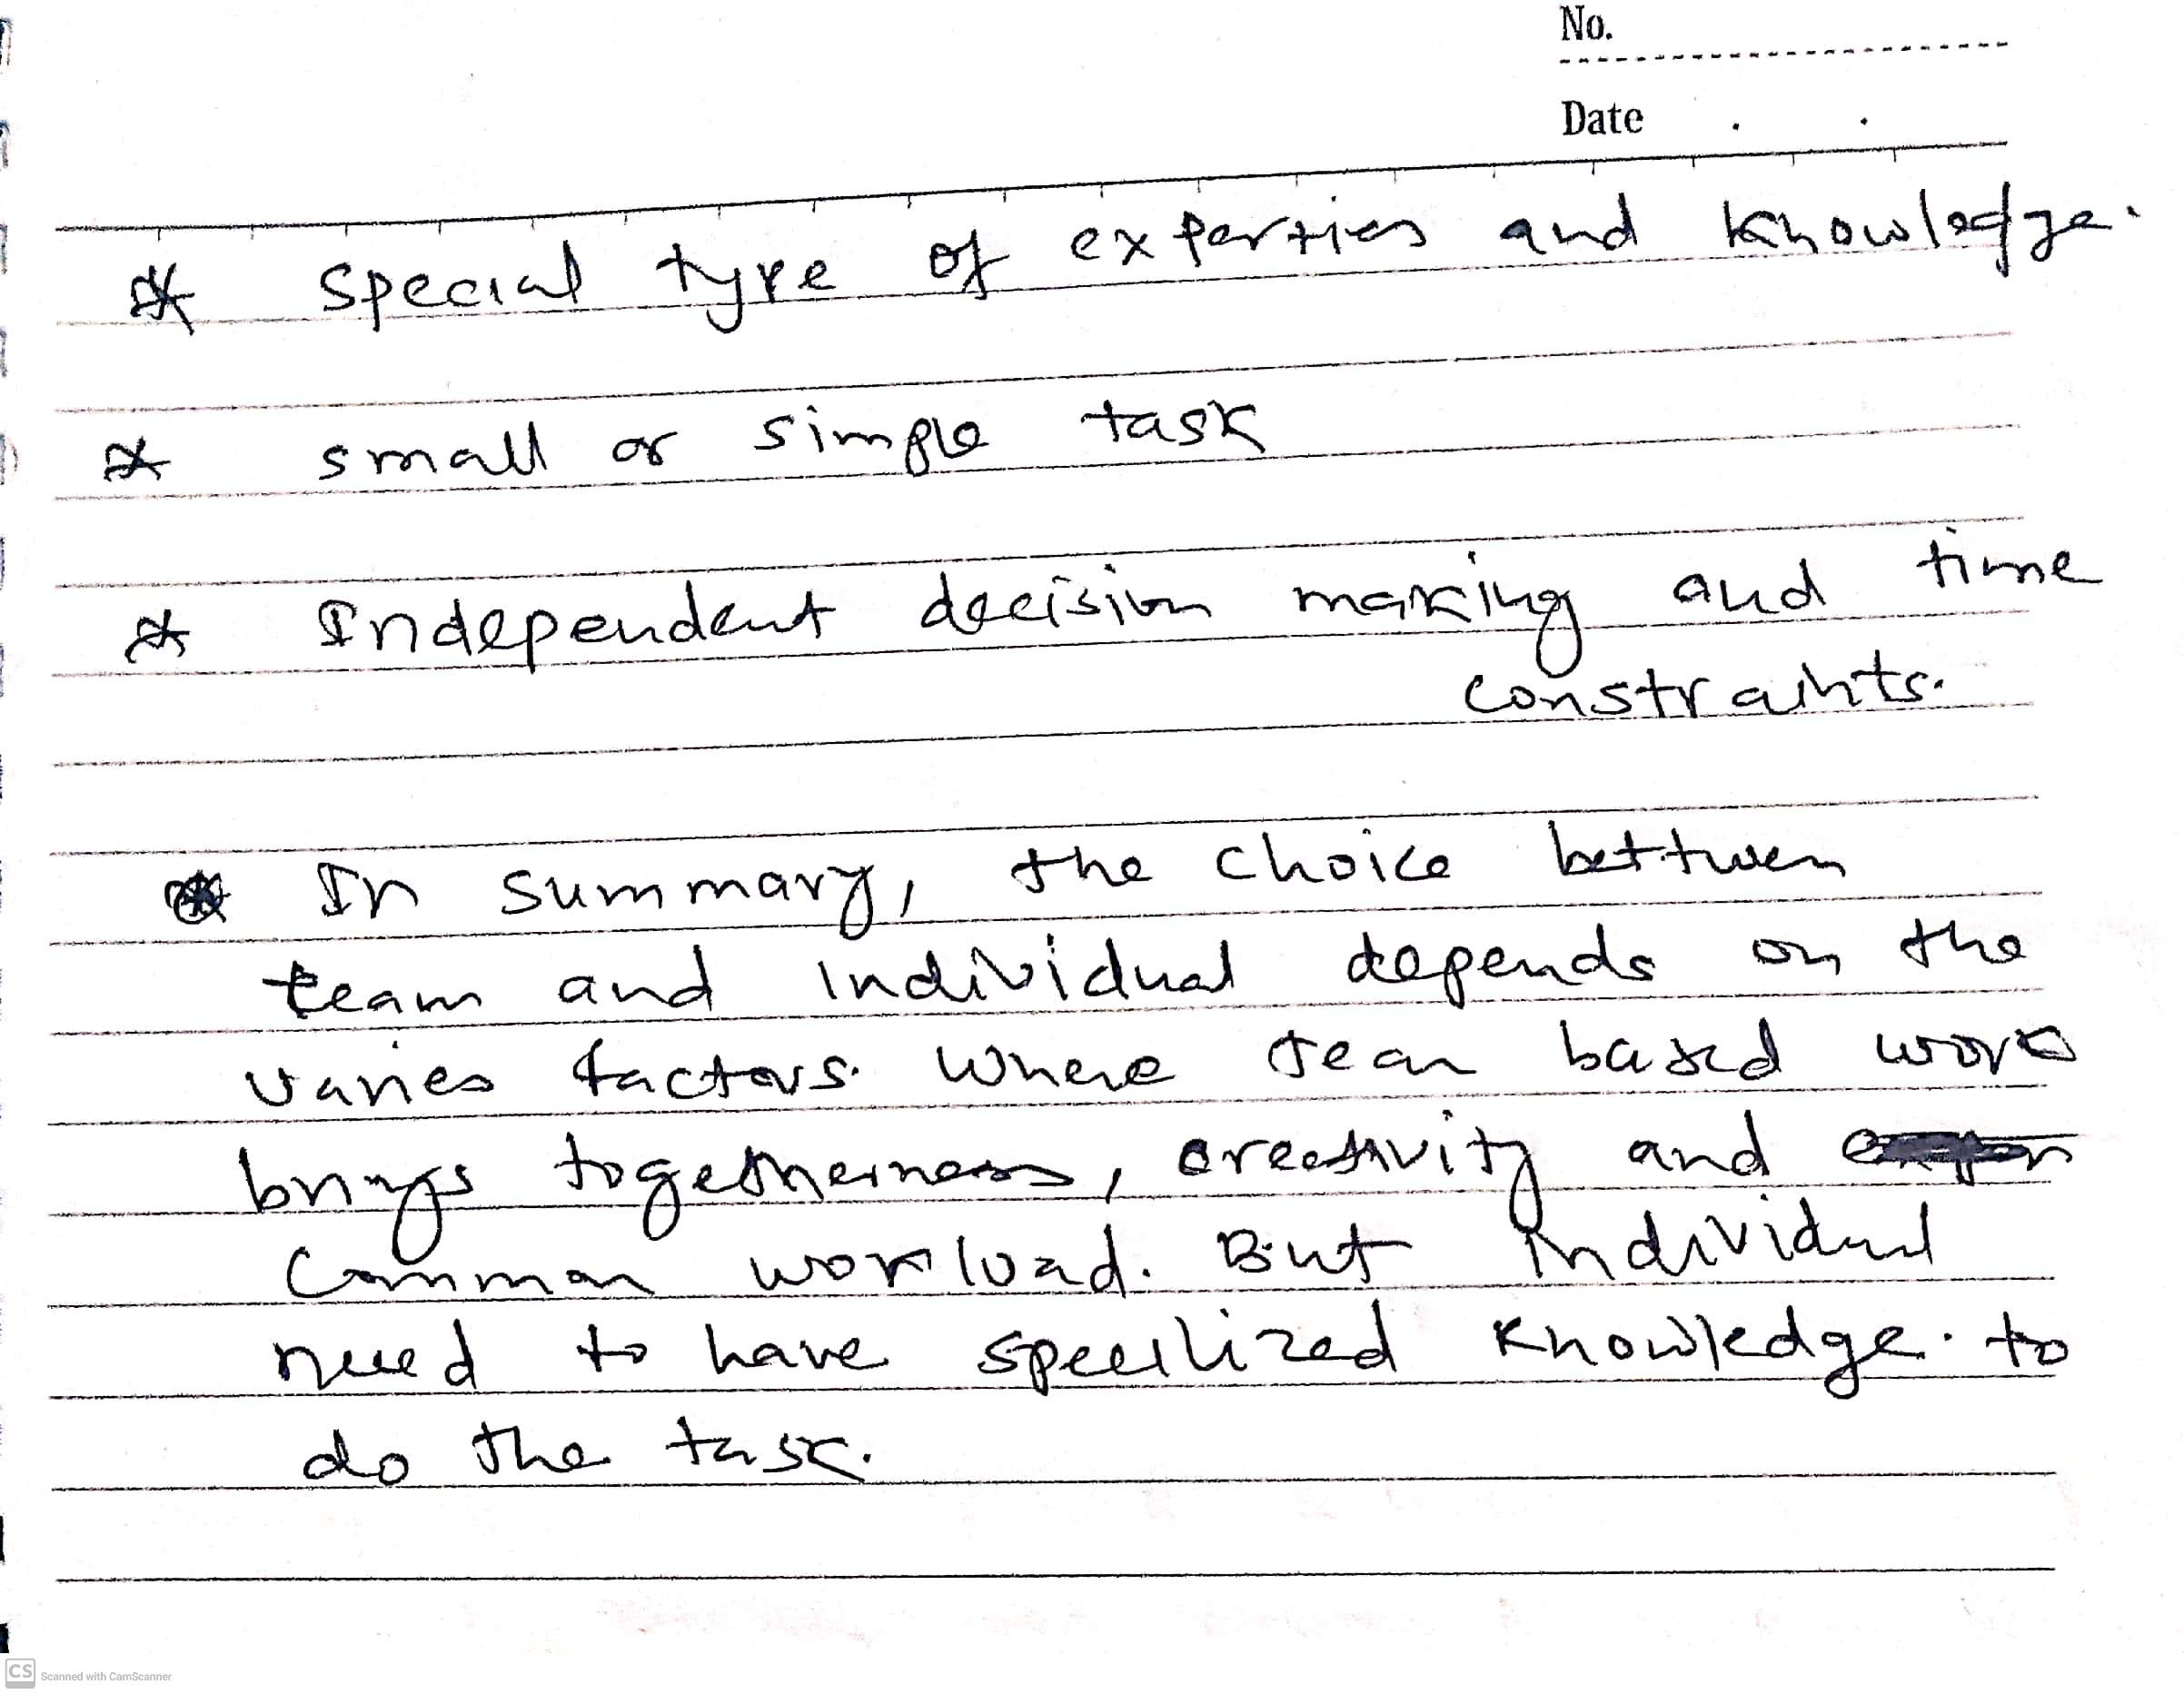 No.
Date
* special type of experties and knowledge.
* small or simple task
* Independent decision making and time
constraints.
* In summary, the choice bettween
team and individual depends on the
varies factors. Where team based work
brings togetherness, creativity and
common workload. But individual
need to have specilized knowledge. to
do the task.
CS Scanned with CamScanner